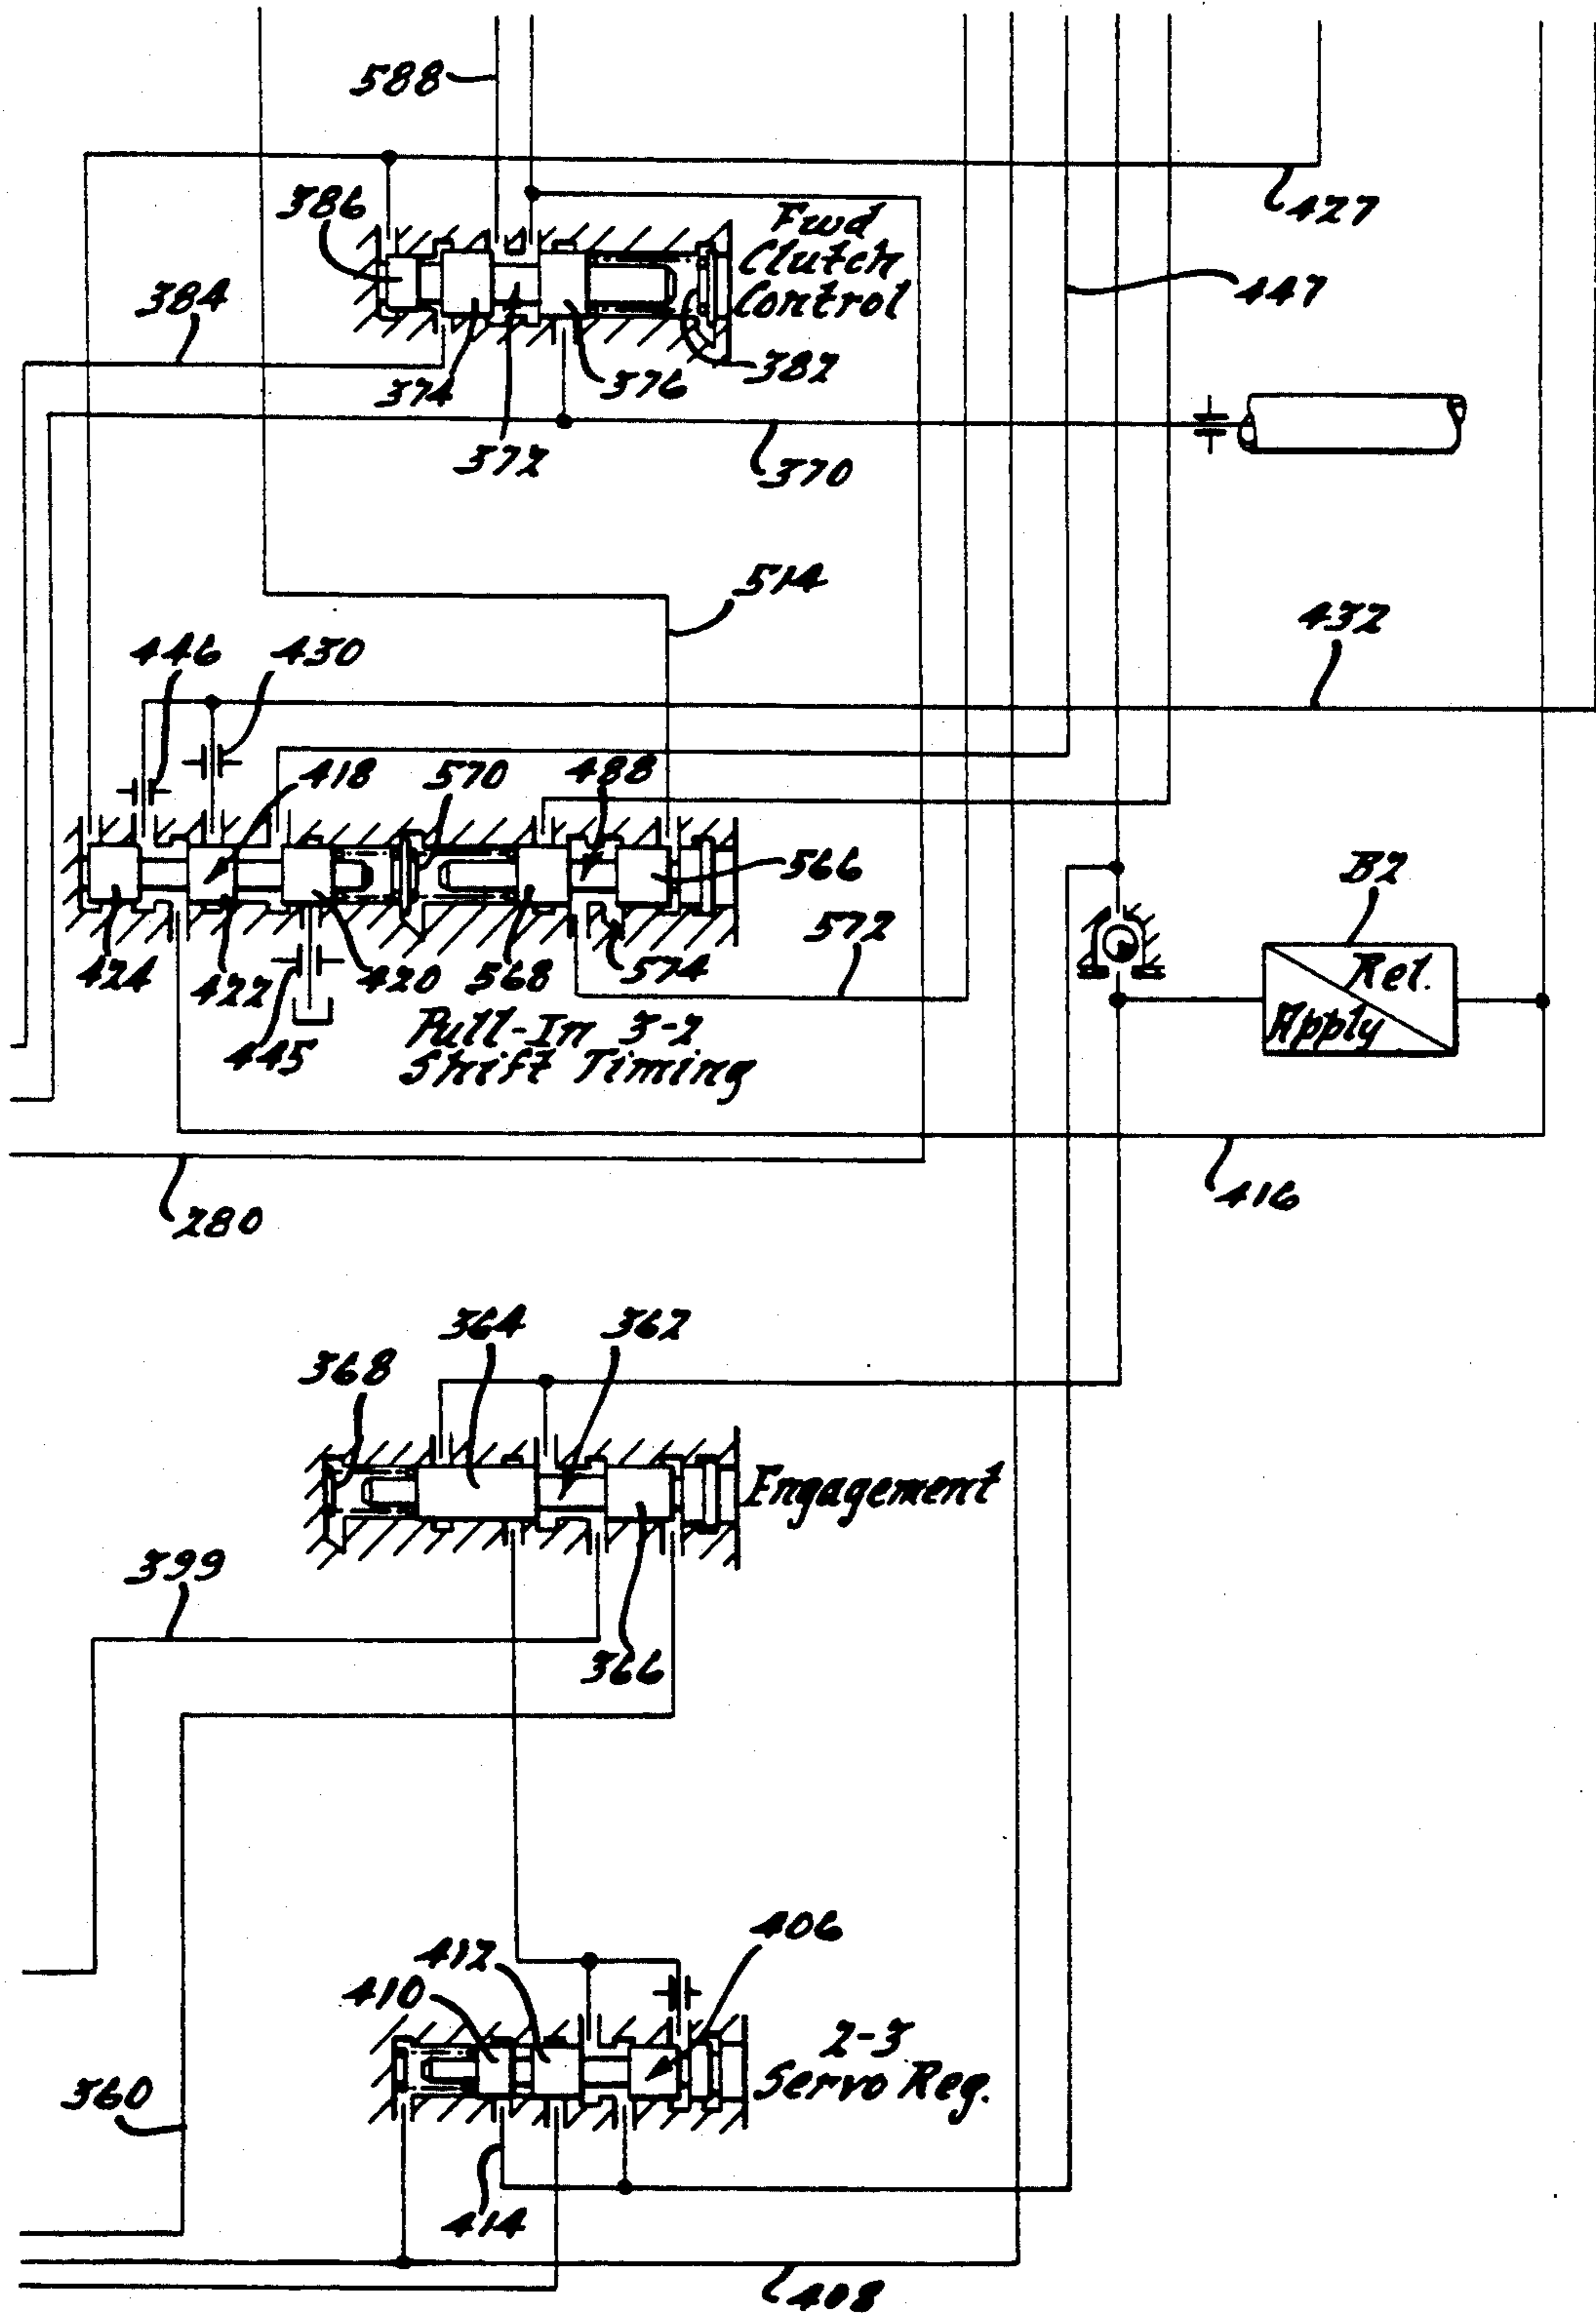 588
427
386
Fwd
Clutch
Control
384
447
374
376
382
372
370
514
432
446
430
418
570
488
566
B2
572
Rel.
Apply
424
422
420
568
574
445
Pull-In 3-2
Shift Timing
416
280
364
362
368
Engagement
399
366
406
412
410
2-3
Servo Reg.
360
414
408